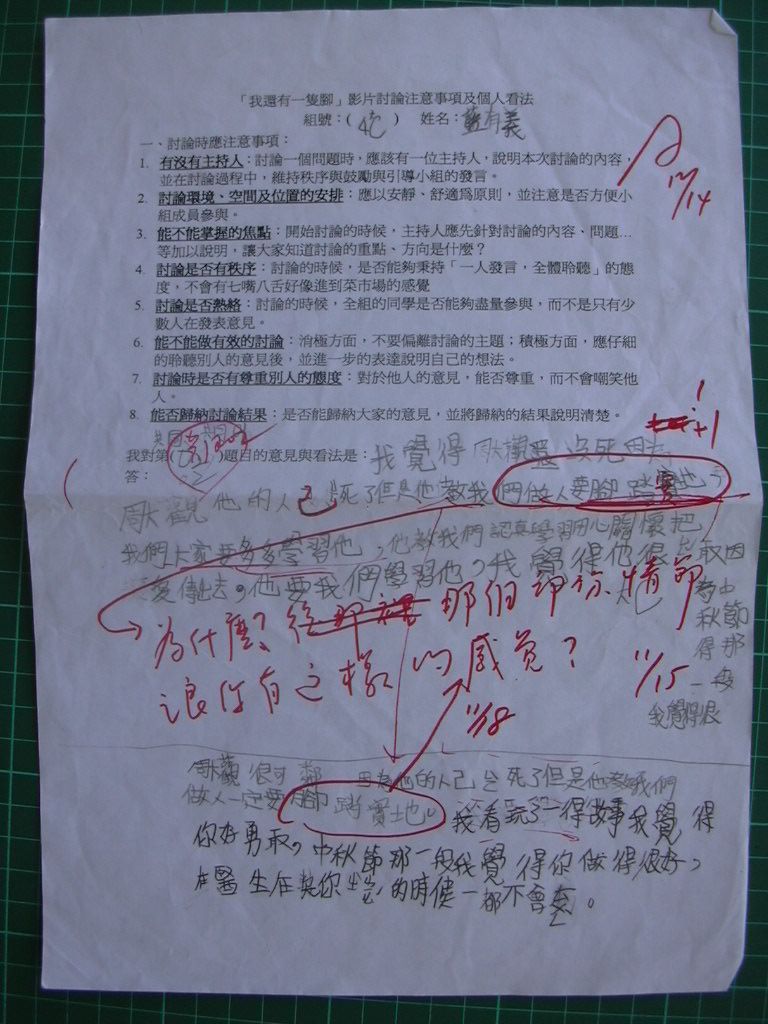 「我還有一隻腳」影片討論注意事項及個人看法
組號：( ) 姓名：有義
12/14
一、討論時應注意事項：
1. 有沒有主持人：討論一個問題時，應該有一位主持人，說明本次討論的內容，
並在討論過程中，維持秩序與鼓勵與引導小組的發言。
2. 討論環境、空間及位置的安排：應以安靜、舒適為原則，並注意是否方便小
組成員參與。
3. 能不能掌握的焦點：開始討論的時候，主持人應先針對討論的內容、問題…
等加以說明，讓大家知道討論的重點、方向是什麼？
4. 討論是否有秩序：討論的時候，是否能夠秉持「一人發言，全體聆聽」的態
度，不會有七嘴八舌好像進到菜市場的感覺
5. 討論是否熱絡：討論的時候，全組的同學是否能夠盡量參與，而不是只有少
數人在發表意見。
6. 能不能做有效的討論：消極方面，不要偏離討論的主題；積極方面，應仔細
的聆聽別人的意見後，並進一步的表達說明自己的想法。
7. 討論時是否有尊重別人的態度：對於他人的意見，能否尊重，而不會嘲笑他
人。
8. 能否歸納討論結果：是否能歸納大家的意見，並將歸納的結果說明清楚。
我對第( )題目的意見與看法是：我覺得周大觀沒死因為
答：
周大觀他的人已死了但是他教我們做人要腳踏實地
我們大家要多多學習他，他教我們認真學習用心關懷把
愛傳出去。他要我們學習他，我覺得他很勇敢因
為中
秋節
得那
一段
我覺得很
為什麼？從那個部份情節
讓你有這樣的感覺？
11/15
11/18
周大觀很可 因為他的人已 死了但是他教我們
做人一定要腳踏實地。我看玩了一得故事我覺得
你好勇敢，中秋節那一段我覺得你做得很好，
在醫生在 你 的時候一都不會 。